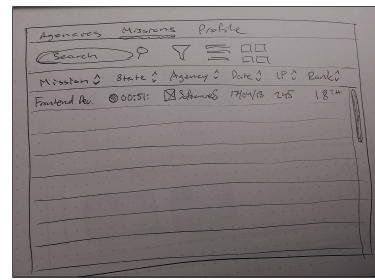 Agencies Missions Profile
Search
Mission State Agency Date LP Rank
Frontend Dev. 00:51: 17/04/13 245 18TH